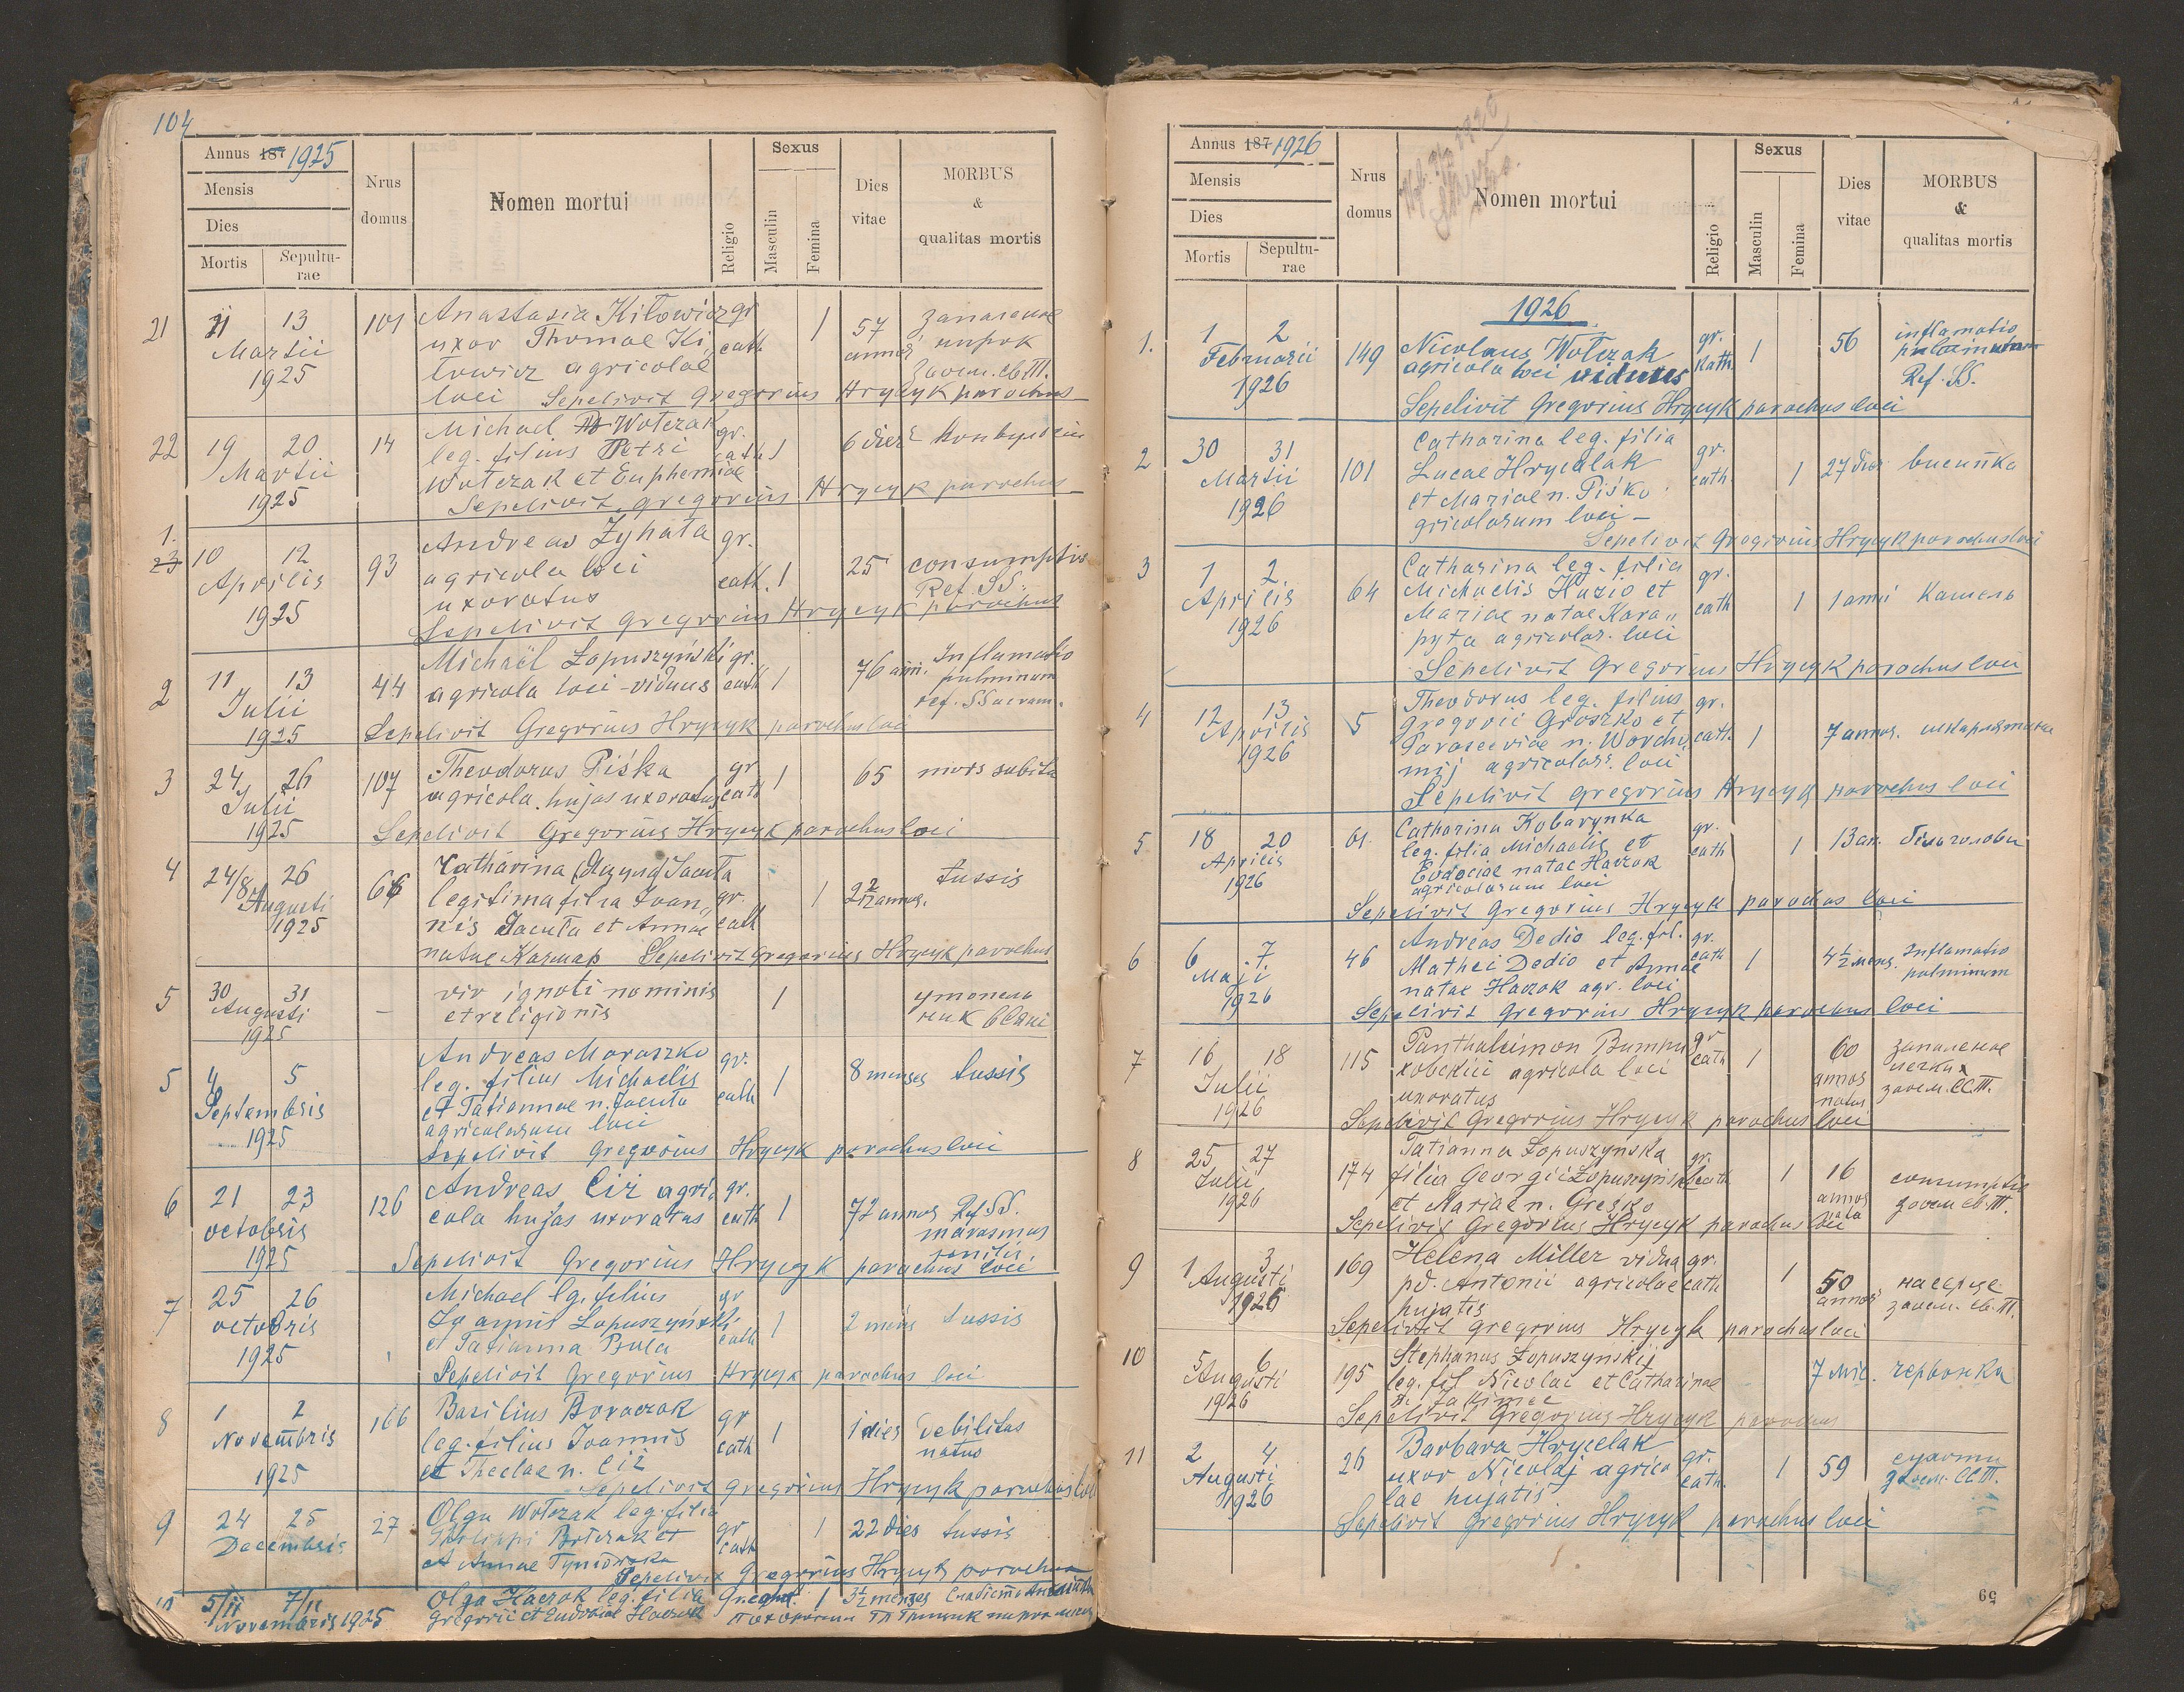 104
Annus 187 1925
Mensis
Dies
Mortis
Sepultu-
rae
Nrus
domus
Nomen mortui
Religio
Sexus
Masculin
Femina
Dies
vitae
MORBUS
&
qualitas mortis
21 11 13 101 Anastasia Kitowicz gr
Martii uxor Thomae Ki cath 1 57 запаленє
1925 towicz agricolae annos
loci Sepelivit Gregorius Hrycyk parochus
22 19 20 14 Michael Wotczak gr.
Martii leg. filius Petri cath 1 6 dies
1925 Wotczak et Euphemiae
Sepelivit Gregorius Hrycyk parochus
1.
23 10 12 93 Andreas Zyhata gr.
Aprilis agricola loci cath. 1 25 consumptio
1925 uxoratus Ref. SS.
Sepelivit Gregorius Hrycyk parochus
2 11 13 44 Michaël Łopuszyński gr.
Julii agricola loci - viduus cath 1 76 ann. Inflamatio
pulminum
1925 ref. SSacram.
Sepelivit Gregorius Hrycyk parochus loci
3 24 26 107 Theodorus Piśka gr
Julii agricola hujas uxoratus cath 1 65 mors subita
1925 Sepelivit Gregorius Hrycyk parochus loci
4 24/8 26 66 Catharina Jacuta
Augusti legitima filia Joan gr. 1 annos. tussis
1925 nis Jacuta et Annae cath
natae Sepelivit Gregorius Hrycyk parochus
5 30 31 — vir ignoti nominis 1
Augusti et religionis
1925
5 4 5 Andreas Moroszko gr.
Septembris leg. filius Michaelis cath 1 8 menses tussis
1925 et Tatiannae n. Jacuta
agricolarum loci
Sepelivit Gregorius Hrycyk parochus loci
6 21 23 126 Andreas Ciż agri gr.
octobris cola hujas uxoratus cath 1 72 annos Ref. SS.
1925 marasmus
senilis.
Sepelivit Gregorius Hrycyk parochus loci
7 25 26 Michael lg. filius gr
octobris Joannis Łopuszyński cath 1 2 mens tussis
1925 et Tatianna
Sepelivit Gregorius Hrycyk parochus loci
8 1 2 166 Basilius Boraczok gr
Novembris leg. filius Joannis cath 1 1 dies debilitas
1925 et Theclae n. Ciż natus
Sepelivit Gregorius Hrycyk parochus loci
9 24 25 27 Olga Wotczak leg. filia
Decembris Philippi Wotczak et gr cath 1 22 dies tussis
et Annae
Sepelivit Gregorius Hrycyk parochus
10 5/11 7/11 Olga Haczok leg. filia 1 3 1/2 menses
Novembris 1925 Gregorii et Eudociae Haczok
Annus 187 1926
Mensis
Dies
Mortis
Sepultu-
rae
Nrus
domus
Nomen mortui
Religio
Sexus
Masculin
Femina
Dies
vitae
MORBUS
&
qualitas mortis
1926
1. 1 2 149 Nicolaus Wotczak gr. 1 56 inflamatio
Februarii agricola loci viduus Kath. pulminum
1926 Ref. SS.
Sepelivit Gregorius Hrycyk parochus loci
2 30 31 101 Catharina leg. filia gr.
Martii Lucae Hrycelak cath. 1 27 dies висипка
1926 et Mariae n. Piśko
gricolarum loci —
Sepelivit Gregorius Hrycyk parochus loci
3 1 2. 64 Catharina leg. filia gr.
Aprilis Michaelis Huzio et cath 1 1 anni Кашель
1926 Mariae natae Kara
pyta agricolar. loci
Sepelivit Gregorius Hrycyk parochus loci
4 12 13 5 Theodorus leg. filius gr.
Aprilis Gregorii Groszko et cath. 1 7 annos. шкарлятина
1926 Parasceviae n. Worchi
mij agricolar. loci
Sepelivit Gregorius Hrycyk parochus loci
5 18 20 61. Catharina Kobarynka gr.
Aprilis leg. filia Michaelis et cath 1 13 an. біль голови
1926 Eudociae natae Haczok
agricolarum loci
Sepelivit Gregorius Hrycyk parochus loci
6 6 7. 46 Andreas Dedio leg. fil. gr.
Maji Mathei Dedio et Annae cath 1 4 1/2 mens. Inflamatio
1926 natae Haczok agr. loci pulminum
Sepelivit Gregorius Hrycyk parochus loci
7 16 18 115 Panthaleimon gr
Julii agricola loci cath 1 60 запаленє
1926 uxoratus annos
natus
Sepelivit Gregorius Hrycyk parochus loci
8 25 27 174 Tatianna Łopuszynska gr.
Julii filia Georgii Łopuszyński cath 1 16 consumptio
1926 et Mariae n. Greśko annos
nata
Sepelivit Gregorius Hrycyk parochus loci
9 1 3 169 Helena Miller vidua gr.
Augusti pd. Antonii agricolae cath 1 50 на серце
1926 hujatis annos
Sepelivit Gregorius Hrycyk parochus loci
10 5 6 195 Stephanus Łopuszynskij
Augusti leg. fil Nicolai et Catharinae 7 міс. червонка
1926 n. Jakimec
Sepelivit Gregorius Hrycyk parochus
11 2 4 26 Barbara Hrycelak
Augusti uxor Nicolaj agrico gr. 1 59
1926 lae hujatis cath.
Sepelivit Gregorius Hrycyk parochus loci
59